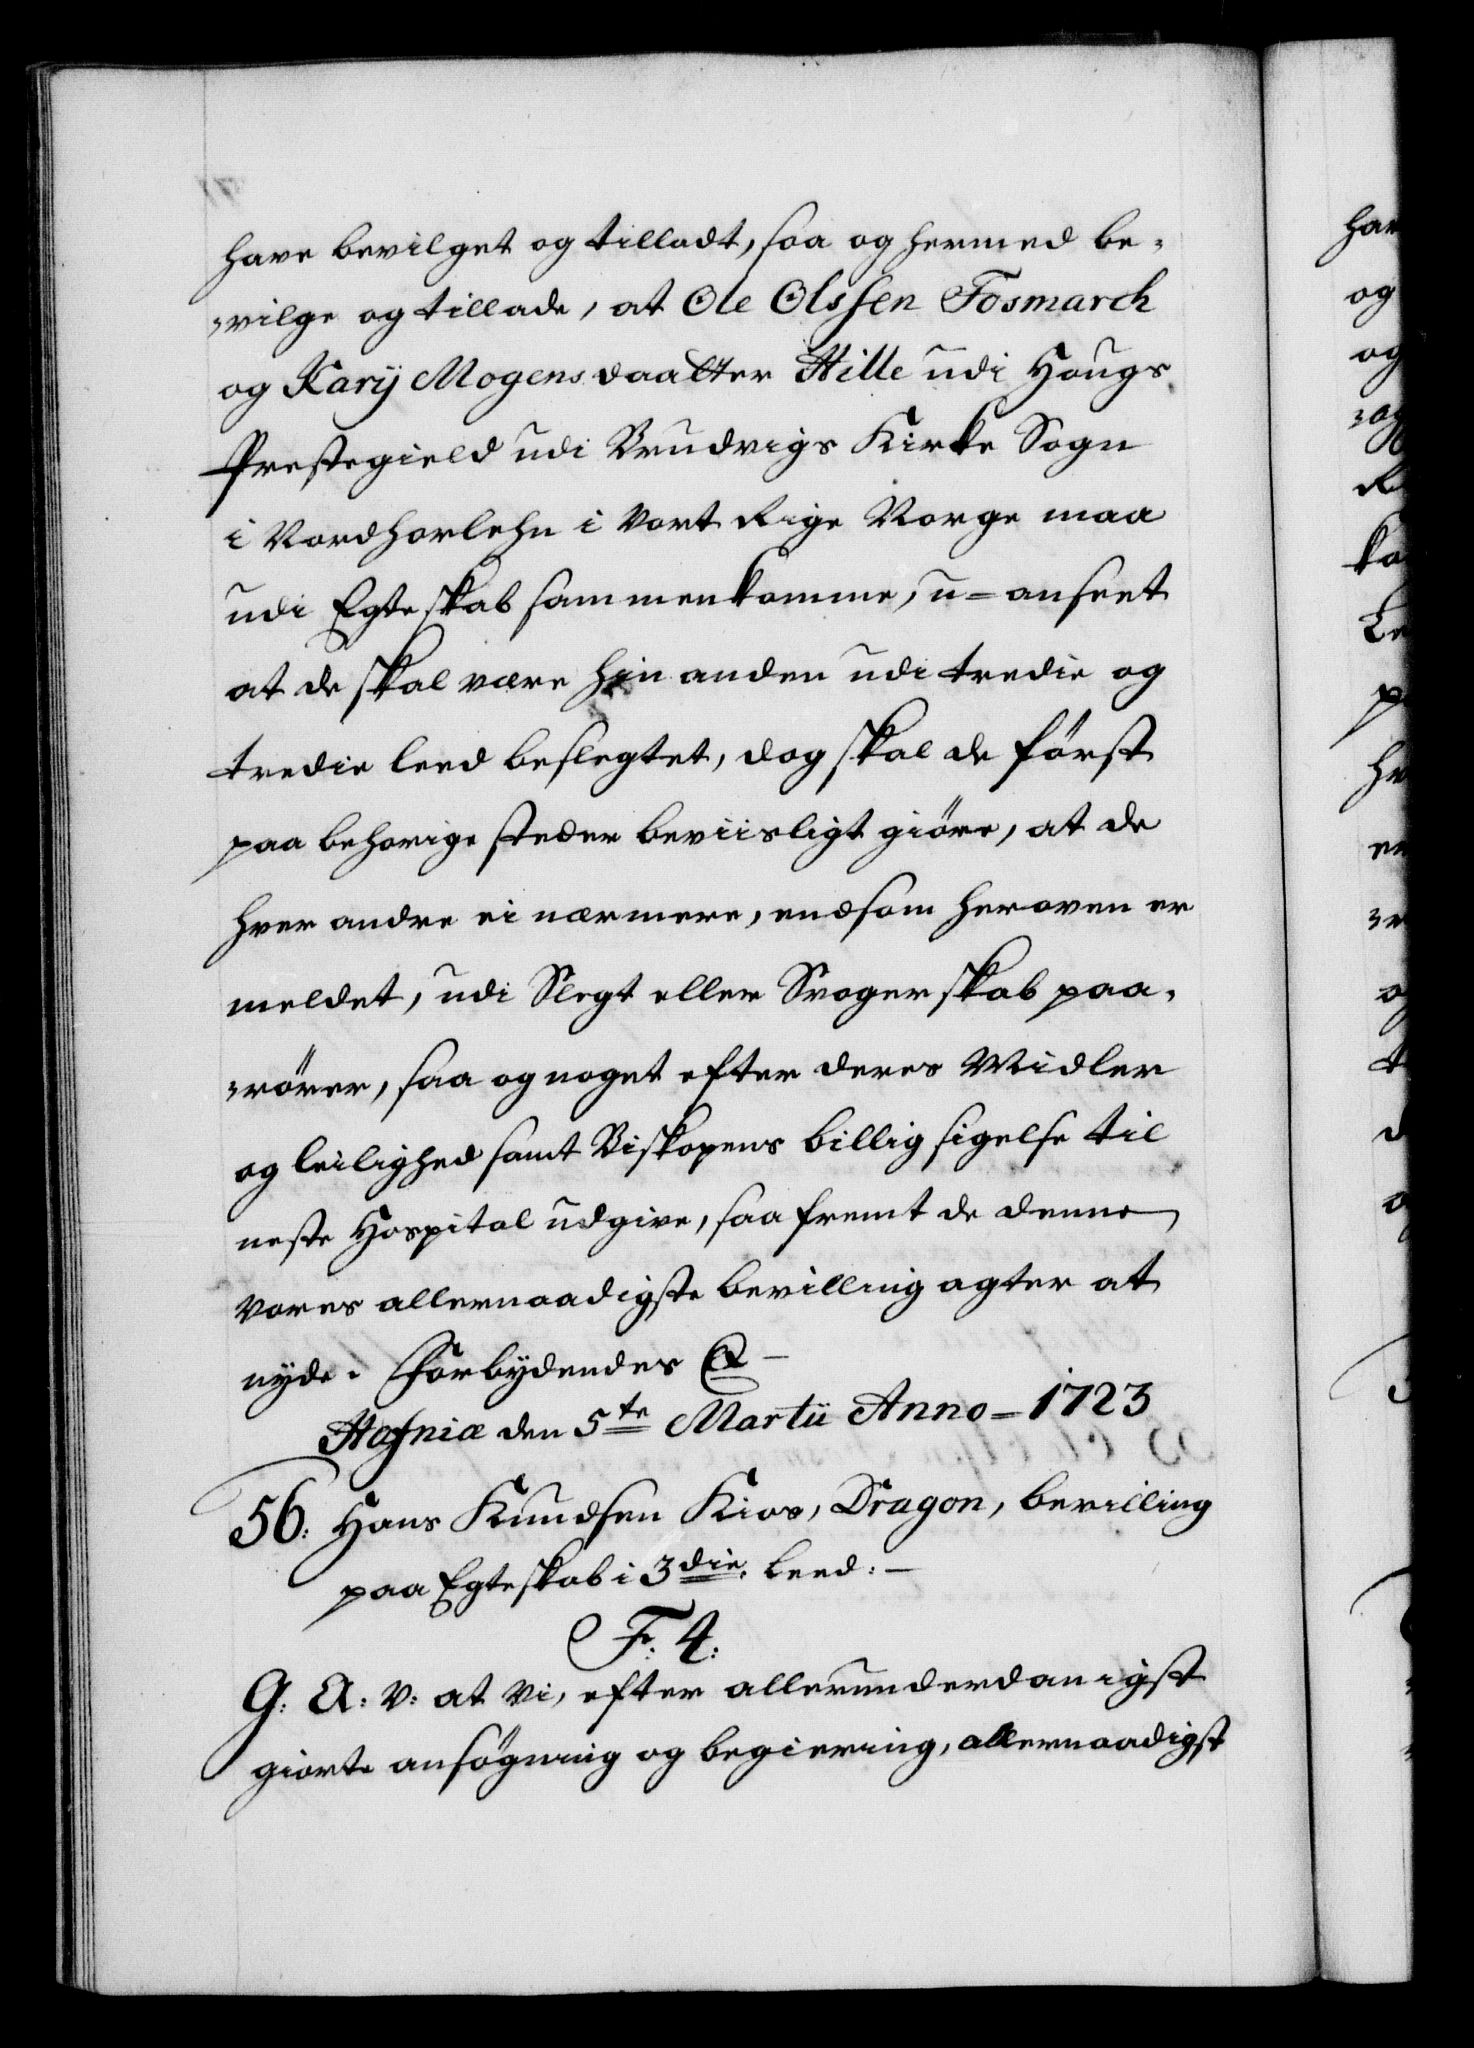 have bevilget og tilladt, saa og hermed be-
vilge og tillade, at Ole Olssen Fosmarck
og Karij Mogensdaatter Hille udi Hougs
Prestegield udi Brudvigs Kirke Sogn
i Nordhorlehn i Vort Rige Norge maa
udi Egteskab sammenkomme, u-anseet
at de skal være hin anden udi tredie og
tredie leed beslegtet, dog skal de först
paa behorige steder beviisligt giöre, at de
hver andre ei nærmere, end som heroven er
meldet, udi Slegt eller Svogerskab paa-
rörer, saa og noget efter deres Midler
og leilighed samt Biskopens billig sigelse til
neste Hospital udgive, saafremt de denne
vores allernaadigste bevilling agter at
nyde. Forbydendes &
Hafniæ den 5te Martii Anno-1723
56: Hans Knudsen Kios, Dragon, bevilling
paa Egteskab i 3die Leed:-
F: 4:
G: A: v: at vi, efter allerunderdanigst
giorte ansögning og begiering, allernaadigst